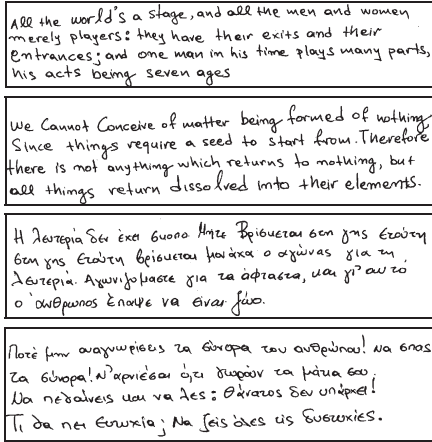 All the world's a stage, and all the men and women
merely players: they have their exits and their
entrances; and one man in his time plays many parts,
his acts being seven ages
We Cannot Conceive of matter being formed of nothing
Since things require a seed to start from. Therefore
there is not anything which returns to nothing, but
all things return dissolved into their elements.
Η λευτεριά δεν έχει σκοπο Μητε Βρίσκεται στη γης ετούτη
στη γης ετούτη βρίσκεται μονάχα ο αγώνας για τη
λευτεριά. Αγωνιζόμαστε για τα άφταστα, και γι' αυτό
ο άνθρωπος έπαψε να είναι ζώο.
Ποτέ μην αναγνωρίσεις τα σύνορα του ανθρώπου! Να σπας
τα σύνορα! Ν' αρνιέσαι ό,τι θωρούν τα μάτια σου
Να πεθαίνεις και να λες: Θάνατος δεν υπάρχει!
Τι θα πει Ευτυχία; Να ζεις όλες τις δυστυχίες.